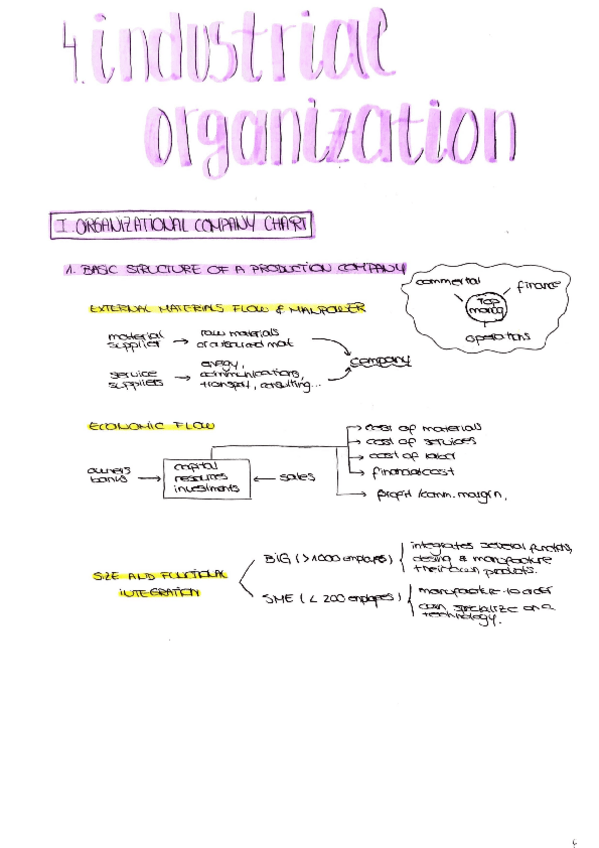 4. industrial
organization
I. ORGANIZATIONAL COMPANY CHART
1. BASIC STRUCTURE OF A PRODUCTION COMPANY
commercial
finance
Top
manag
operations
EXTERNAL MATERIALS FLOW & MANPOWER
material
supplier → raw materials
service
suppliers → energy,
communications,
transport, consulting...
company
ECONOMIC FLOW
owners
banks → capital
resources
investments ← sales
→ cost of materials
→ cost of services
→ cost of labor
→ financial cost
→ profit / comm. margin,
SIZE AND FUNCTIONAL
INTEGRATION
BIG (>1000 employees)
integrates several functions,
desing & manufacture
their own products.
SME (< 200 employees)
manufacture-to-order
can specialize on a
technology.